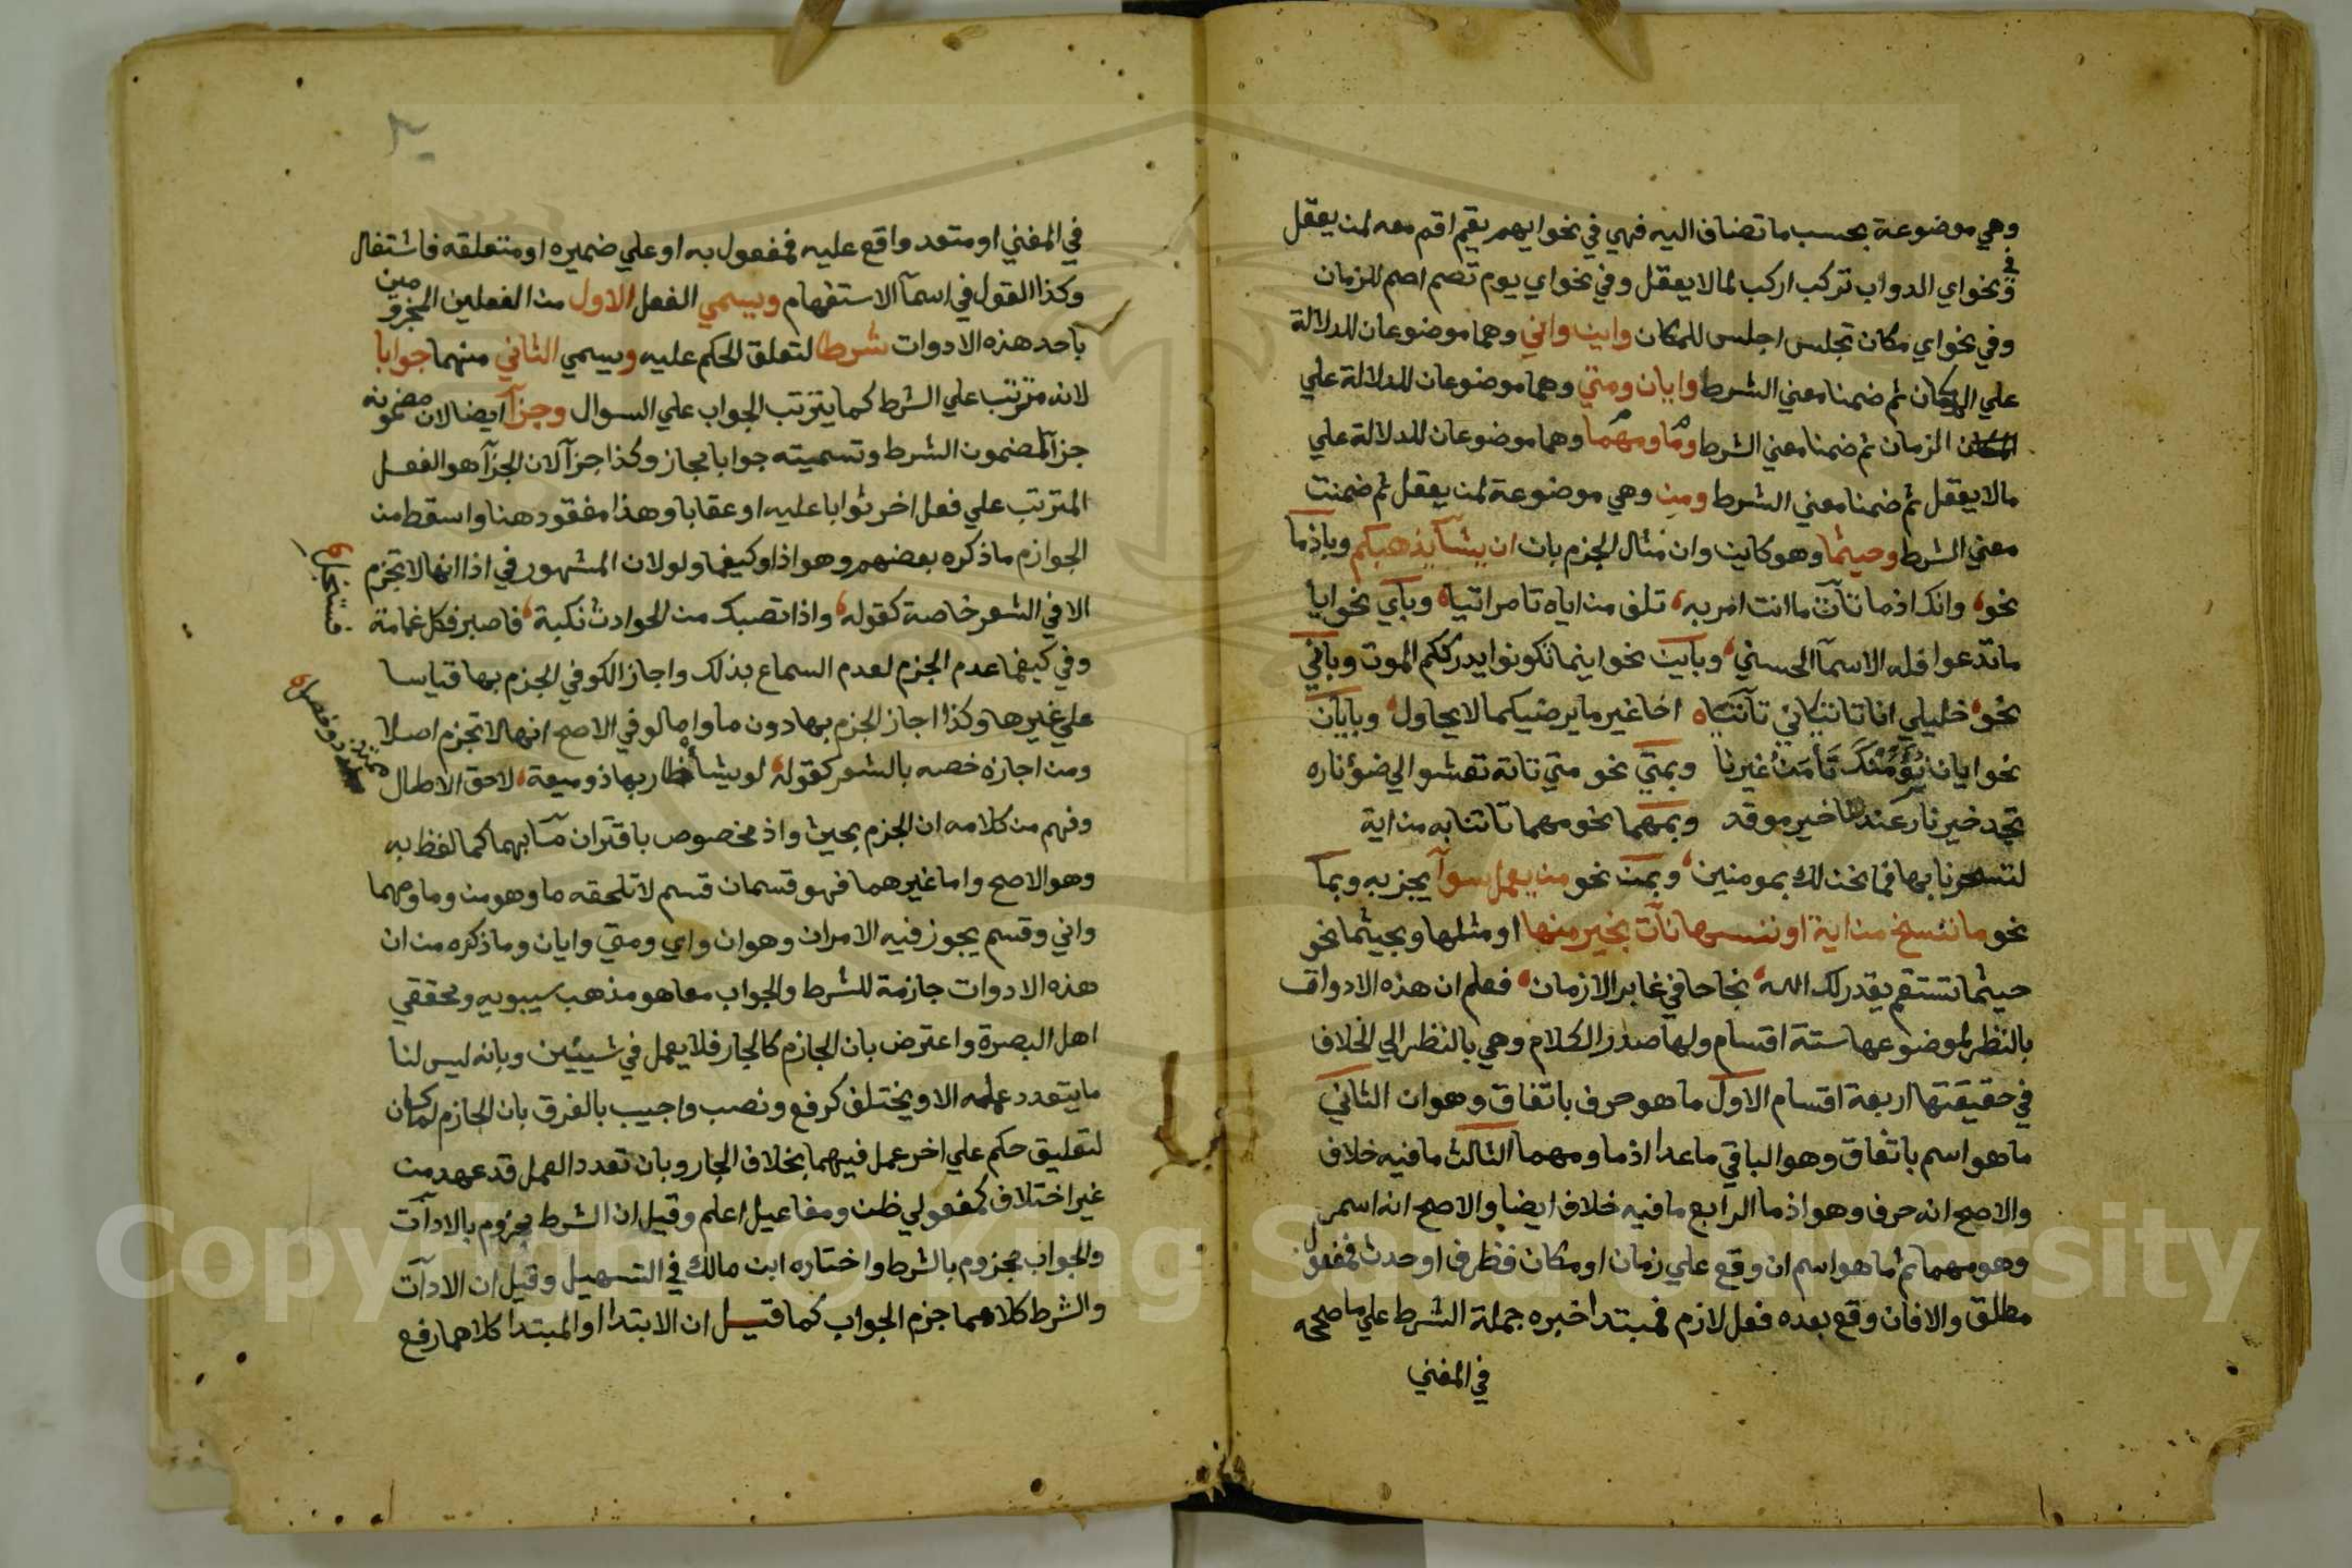 وهي موضوعة بحسب ما تضاف اليه فهي في نحو ايهم يقم اقم معه لمن يعقل
وفي نحو اي الدواب تركب اركب لما لا يعقل وفي نحو اي يوم تصم اصم للزمان
وفي نحو اي مكان تجلس اجلس للمكان واين واني وهما موضوعان للدلالة
علي المكان ثم ضمنا معني الشرط وايان ومتي وهما موضوعان للدلالة علي
الزمان ثم ضمنا معني الشرط وما ومهما وهما موضوعان للدلالة علي
مالا يعقل ثم ضمنا معني الشرط ومن وهي موضوعة لمن يعقل ثم ضمنت
معني الشرط وحيثما وهو كاين وان مثال الجزم بان ان يشأ يذهبكم وباذما
نحو وانك اذما تأت ما انت امر به تلف من اياه تامر اتيا وبأي نحو ايا
ما تدعوا فله الاسمآ الحسني وباين نحو اينما تكونوا يدرككم الموت وباني
نحو خليلي انا تاتياني تأتيا اخا غير ما يرضيكما لا يحاول وبايان
نحو ايان نؤمنك تأمن غيرنا وبمتي نحو متي تاته تعشوا الي ضؤ ناره
تجد خير نار عندها خير موقد وبمهما نحو مهما تاتنا به من اية
لتسحرنا بها فما نحن لك بمومنين وبمن نحو من يعمل سوآ يجز به وبما
نحو ما ننسخ من اية او ننسها نأت بخير منها او مثلها وبحيثما نحو
حيثما تستقم يقدر لك الله نجاحا في غابر الازمان فعلم ان هذه الادوات
بالنظر لموضوعها ستة اقسام ولها صدر الكلام وهي بالنظر الي الخلاف
في حقيقتها اربعة اقسام الاول ما هو حرف باتفاق وهو ان الثاني
ما هو اسم باتفاق وهو الباقي ما عدا اذما ومهما الثالث ما فيه خلاف
والاصح انه حرف وهو اذما الرابع ما فيه خلاف ايضا والاصح انه اسم
وهو مهما ثم ما هو اسم ان وقع علي زمان او مكان فظرف او حدث فمفعول
مطلق والا فان وقع بعده فعل لازم فمبتدا خبره جملة الشرط علي ما صححه
في المغني
في المغني او متعد واقع عليه فمفعول به او علي ضميره او متعلقه فاشتغال
وكذا القول في اسمآ الاستفهام ويسمي الفعل الاول من الفعلين المجزومين
باحد هذه الادوات شرطا لتعلق الحكم عليه ويسمي الثاني منهما جوابا
لانه مترتب علي الشرط كما يترتب الجواب علي السوال وجزآ ايضا لان مضمونه
جزآ لمضمون الشرط وتسميته جوابا مجاز وكذا جزآ لان الجزآ هو الفعل
المترتب علي فعل اخر ثوابا عليه او عقابا وهذا مفقود هنا واسقط من
الجوازم ما ذكره بعضهم وهو اذا وكيفما ولو لان المشهور في اذا انها لا تجزم
الا في الشعر خاصة كقوله واذا تصبك من الحوادث نكبة فاصبر فكل غمامة
فستنجلي
وفي كيفما عدم الجزم لعدم السماع بذلك واجاز الكوفي الجزم بها قياسا
علي غيرها وكذا اجاز الجزم بها دون ما واما لو في الاصح انها لا تجزم اصلا
ومن اجازه خصه بالشعر كقوله لو يشأ طار بها ذو ميعة لاحق الاطال
وفهم من كلامه ان الجزم بحيث واذ مخصوص باقتران ما بهما كما لفظ به
وهو الاصح واما غيرهما فهو قسمان قسم لا تلحقه ما وهو من وما ومهما
واني وقسم يجوز فيه الامران وهو ان واي ومتي وايان وما ذكره من ان
هذه الادوات جازمة للشرط والجواب معا هو مذهب سيبويه ومحققي
اهل البصرة واعترض بان الجازم كالجار فلا يعمل في شيئين وبانه ليس لنا
ما يتعدد عمله الا ويختلف كرفع ونصب واجيب بالفرق بان الجازم لما كان
لتعليق حكم علي اخر عمل فيهما بخلاف الجار وبان تعدد العمل قد عهد من
غير اختلاف كمفعولي ظن ومفاعيل اعلم وقيل ان الشرط مجزوم بالادآت
والجواب مجزوم بالشرط واختاره ابن مالك في التسهيل وقيل ان الادآت
والشرط كلاهما جزم الجواب كما قيل ان الابتدا او المبتدا كلاهما رفع
Copyright © King Saud University